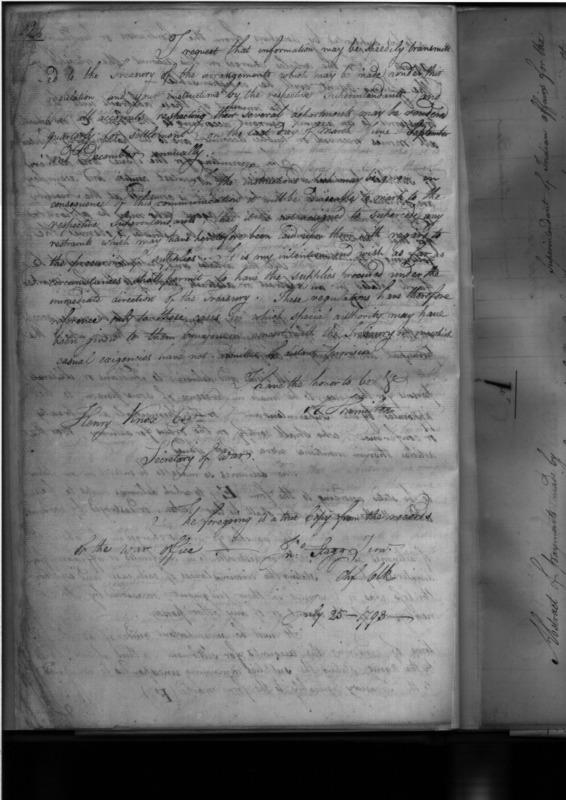 I request that information may be speedily transmitt
ed to the Treasury of the arrangements which may be made under this
regulation and your instructions by the respective Superintendants and
that all accounts respecting their several departments may be
quarterly for settlement on the last day of March June September
& December annually
In the instructions which may be given in
consequence of this communication it will be necessary to remark to the
respective Superintendants that it is not designed to supersede any
restraints which may have heretofore been laid upon them with regard to
the procuring of supplies. It is my intention and wish as far as
circumstances shall permit to have the supplies procured under the
immediate direction of the Treasury. These regulations have therefore
reference only to those cases in which special authority may have
been given to them in concert with the Treasury or in which
casual exigencies have not permitted
I have the honor to be &c
Henry Knox Esqr
Secretary of War
The foregoing is a true Copy from the records
of the war office
Jno Stagg Junr
Chf Clk
July 25 1793
1
Abstract of Payments made by
Superintendant of Indian affairs for the